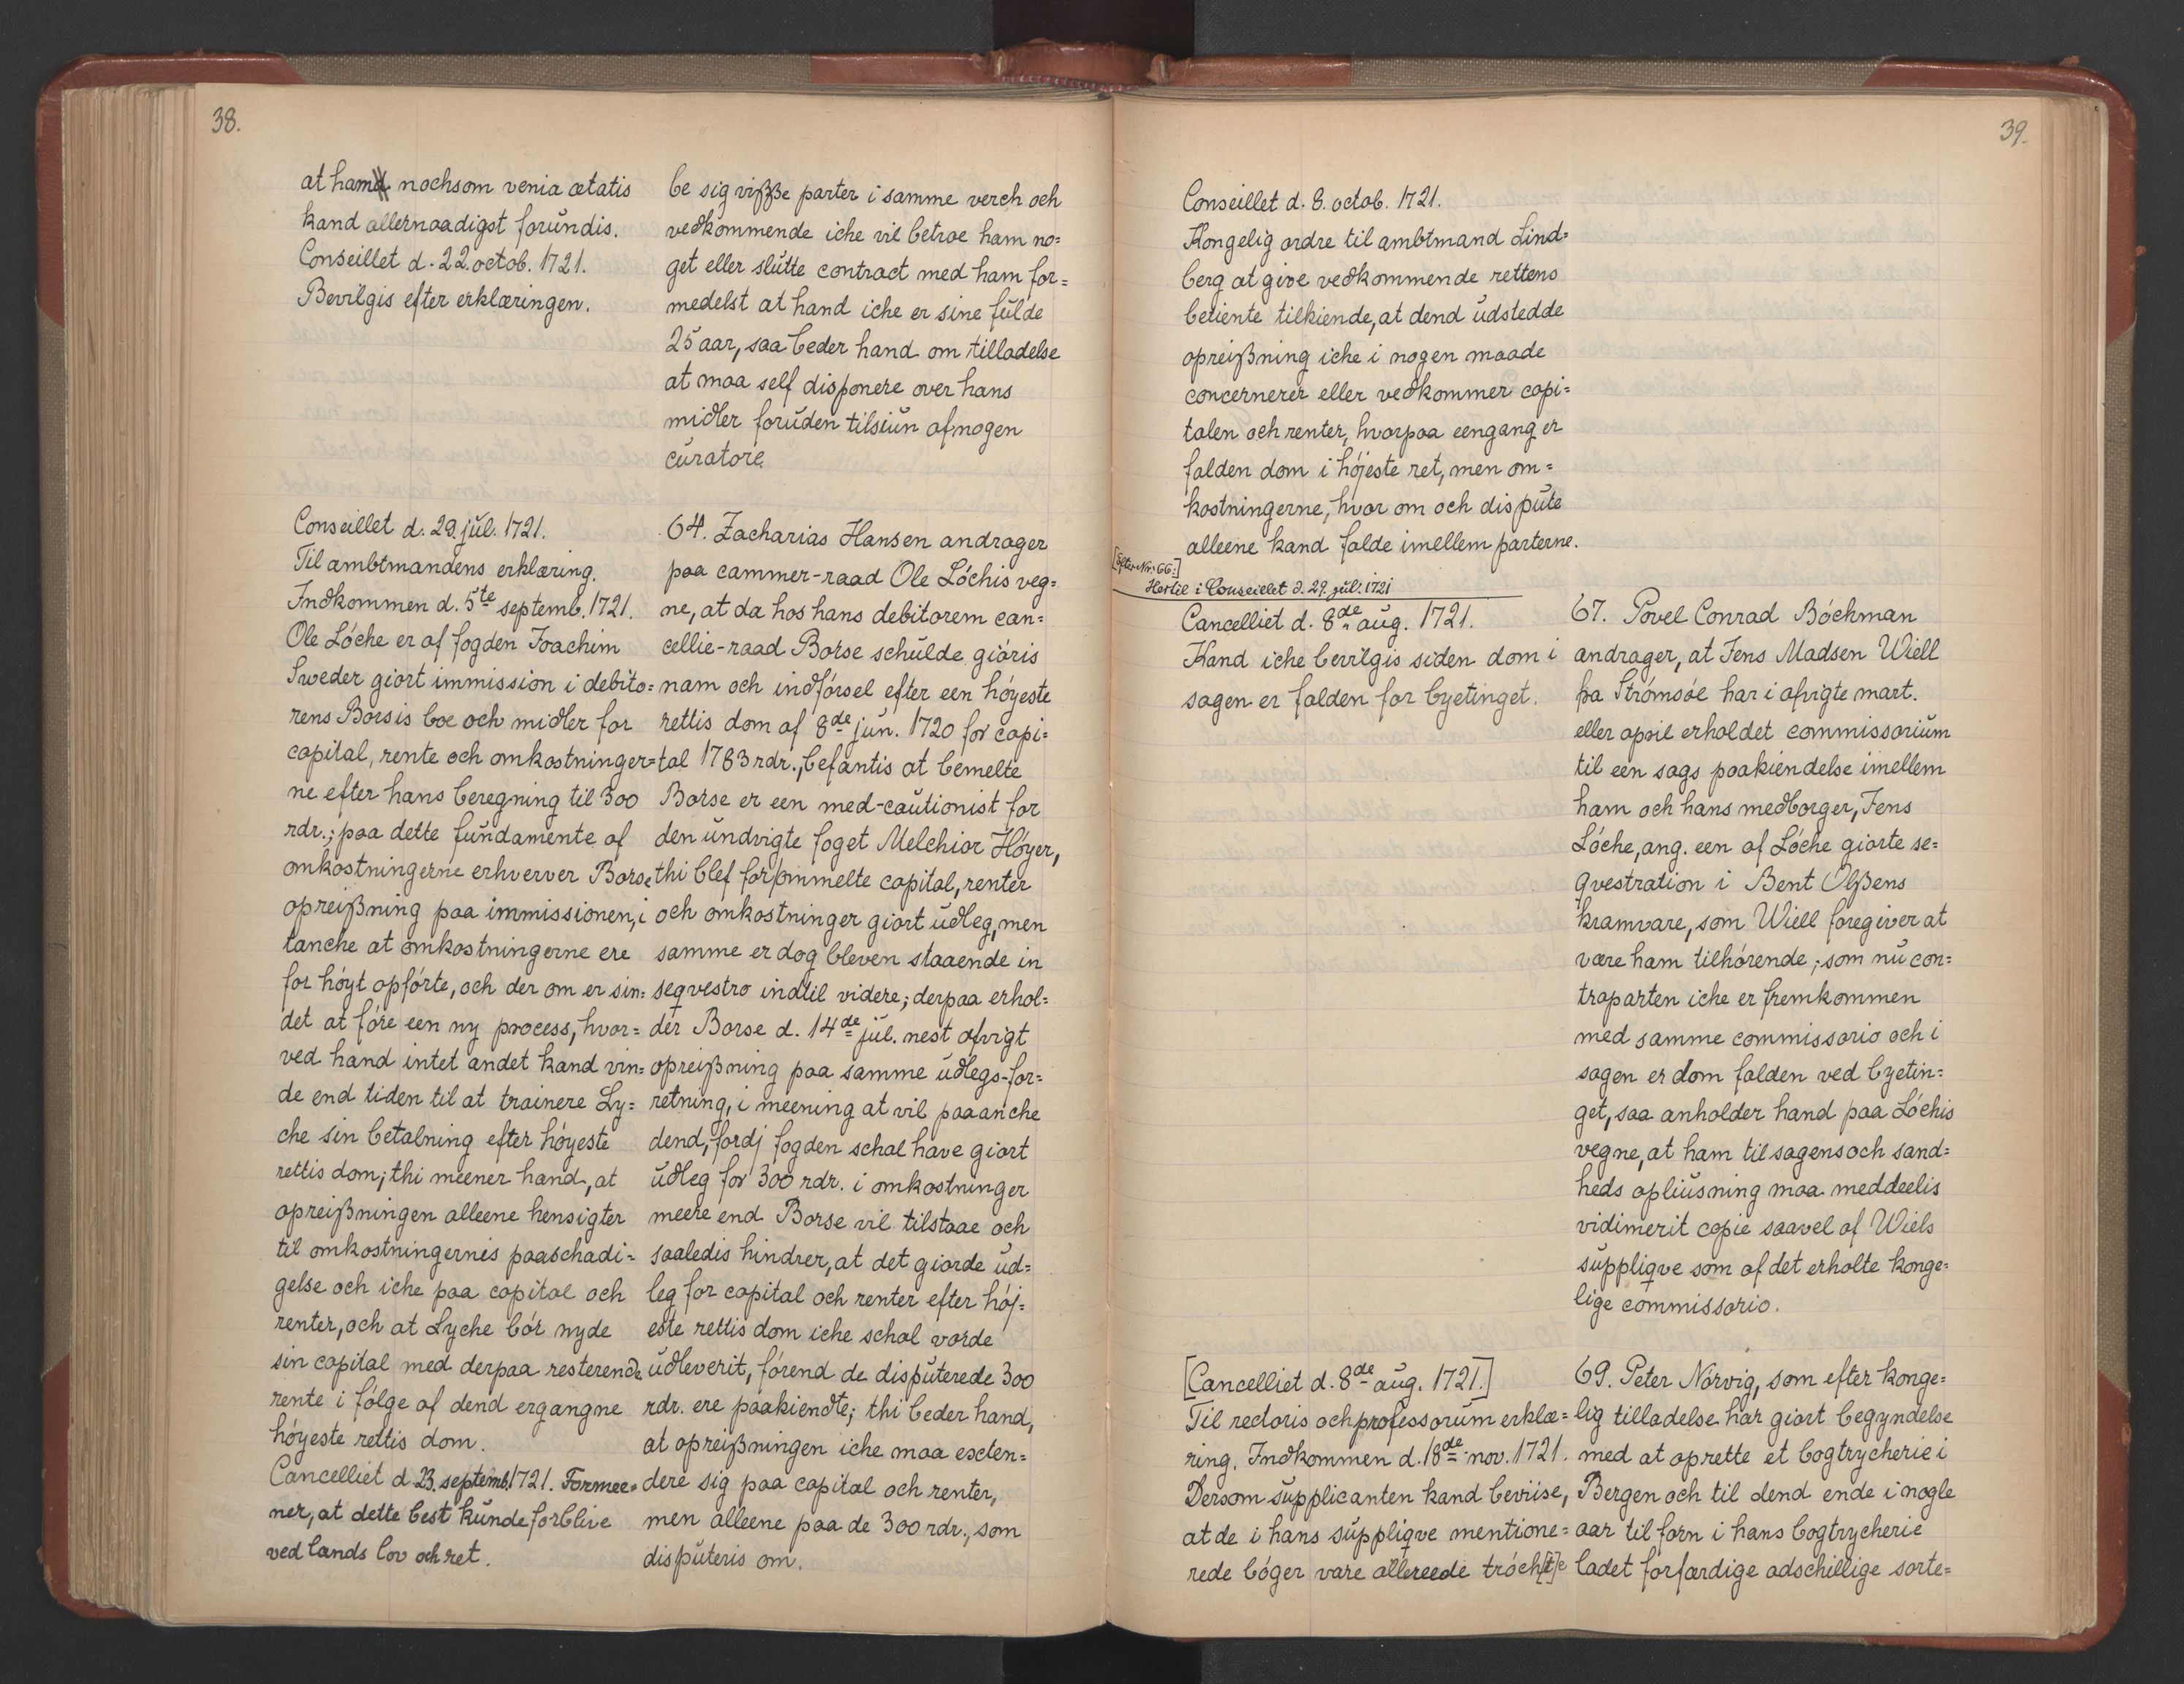 38.
at hand nochsom venia ætatis
kand allernaadigst forundis.
Conseillet d. 22. octob. 1721.
Bevilgis efter erklæringen.
Conseillet d. 29. jul. 1721.
Til ambtmandens erklæring.
Indkommen d. 5te septemb. 1721.
Ole Lóche er af fogden Joachim
Sweder giort immission i debito=
rens Borsis boe och midler for
capital, rente och omkostninger=
ne efter hans beregning til 300
rdr.; paa dette fundamente af
omkostningerne erhverver Borse
opreißning paa immissionen, i
tanche at omkostningerne ere
for hóyt opfórte, och der om er sin=
det at fóre een ny process, hvor=
ved hand intet andet kand vin=
de end tiden til at trainere Ly=
che sin betalning efter hóyeste
rettis dom; thi meener hand, at
opreißningen alleene hensigter
til omkostningernis paaschadi=
gelse och iche paa capital och
renter, och at Lyche bór nyde
sin capital med derpaa resterende
rente i fólge af dend ergangne
hóyeste rettis dom.
Cancelliet d 23. septemb. 1721. Formee=
ner, at dette best kunde forblive
ved lands lov och ret.
be sig viße parter i samme verch och
vedkommende iche vil betroe ham no=
get eller slutte contract med ham for=
medelst at hand iche er sine fulde
25 aar, saa beder hand om tilladelse
at maa self disponere over hans
midler foruden tilsiun af nogen
curatore.
64. Zacharias Hansen andrager
paa cammer-raad Ole Lóchis veg=
ne, at da hos hans debitorem can=
cellie-raad Borse schulde gióris
nam och indfórsel efter een hóyeste
rettis dom af 8de jun. 1720 for capi=
tal 1783 rdr., befantis at bemelte
Borse er een med-cautionist for
den undvigte foget Melchior Hóyer,
thi blef forommelte capital, renter
och omkostninger giort udleg, men
samme er dog bleven staaende in
seqvestro indtil videre; derpaa erhol=
der Borse d. 14de jul. nest afvigt
opreißning paa samme udlegs-for=
retning, i meening at vil paaanche
dend, fordj fogden schal have giort
udleg for 300 rdr. i omkostninger
meere end Borse vil tilstaae och
saaledis hindrer, at det giorde ud=
leg for capital och renter efter hój=
este rettis dom iche schal vorde
udleverit, fórend de disputerede 300
rdr. ere paakiendte; thi beder hand,
at opreißningen iche maa exten=
dere sig paa capital och renter,
men alleene paa de 300 rdr., som
disputeris om.
39.
Conseillet d. 8. octob. 1721.
Kongelig ordre til ambtmand Lind=
berg at give vedkommende rettens
betiente tilkiende, at dend udstedde
opreißning iche i nogen maade
concernerer eller vedkommer capi=
talen och renter, hvorpaa eengang er
falden dom i hójeste ret, men om=
kostningerne, hvor om och dispute
alleene kand falde imellem parterne.
[Efter Nr. 66:]
Hertil i Conseiellet d. 29. jul. 1721
Cancelliet d. 8de aug. 1721.
Kand iche bevilgis siden dom i
sagen er falden for byetinget.
[Cancelliet d. 8de aug. 1721.]
Til rectoris och professorum erklæ=
ring. Indkommen d. 18de nov. 1721.
Dersom supplicanten kand beviise,
at de i hans suppliqve mentione=
rede bóger vare allereede tróch[t]e
67. Povel Conrad Bóckman
andrager, at Jens Madsen Wiell
pa Strómsóe har i afvigte mart.
eller april erholdet commissorium
til een sags paakiendelse imellem
ham och hans medborger, Jens
Lóche, ang. een af Lóche giorte se=
qvestration i Bent Olßens
kramvare, som Wiell foregiver at
være ham tilhórende; som nu con=
traparten iche er fremkommen
med samme commissorio och i
sagen er dom falden ved byetin=
get, saa anholder hand paa Lóchis
vegne, at ham til sagens och sand=
heds opliusning maa meddeelis
vidimerit copie saavel af Wiels
suppliqve som af det erholte konge=
lige commissorio.
69. Peter Nórvig, som efter konge=
lig tilladelse har giort begyndelse
med at oprette et bogtrycherie i
Bergen och til dend ende i nogle
aar til forn i hans bogtrycherie
ladet forfærdige adschillige sorte=